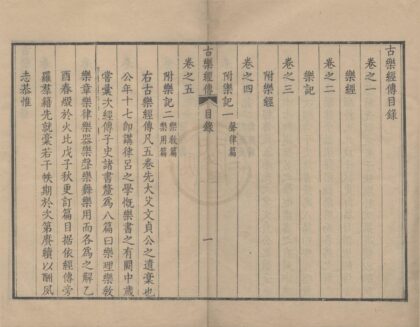 古樂經傳目錄
卷之一
樂經
卷之二
樂記
卷之三
附樂經
卷之四
附樂記一 聲律篇
古樂經傳 目錄 一
卷之五
附樂記二 樂教篇 樂用篇
右古樂經傳凡五卷先大父文貞公之遺稾也
公年十七即講律呂之學慨樂書之有闕中歲
嘗彙次經傳子史諸書釐為八篇曰樂理樂教
樂章樂律樂器樂聲樂舞樂用而各為之解乙
酉春燬於火比戊子秋更訂篇目據依經傳旁
羅羣籍先就稾若干帙期於次第賡續以酬夙
志恭惟